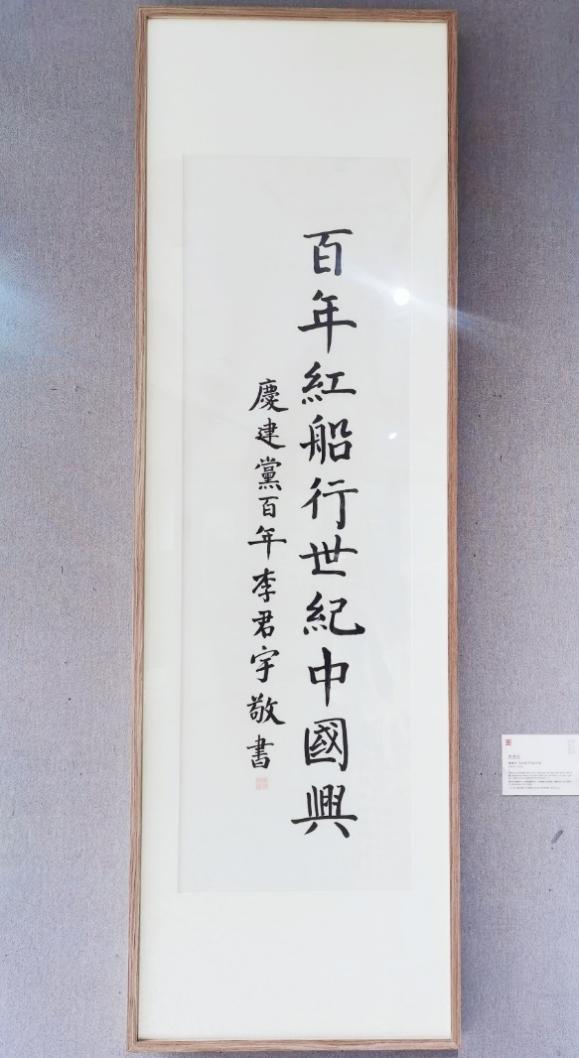 百年紅船行世紀中國興
慶建黨百年李君宇敬書